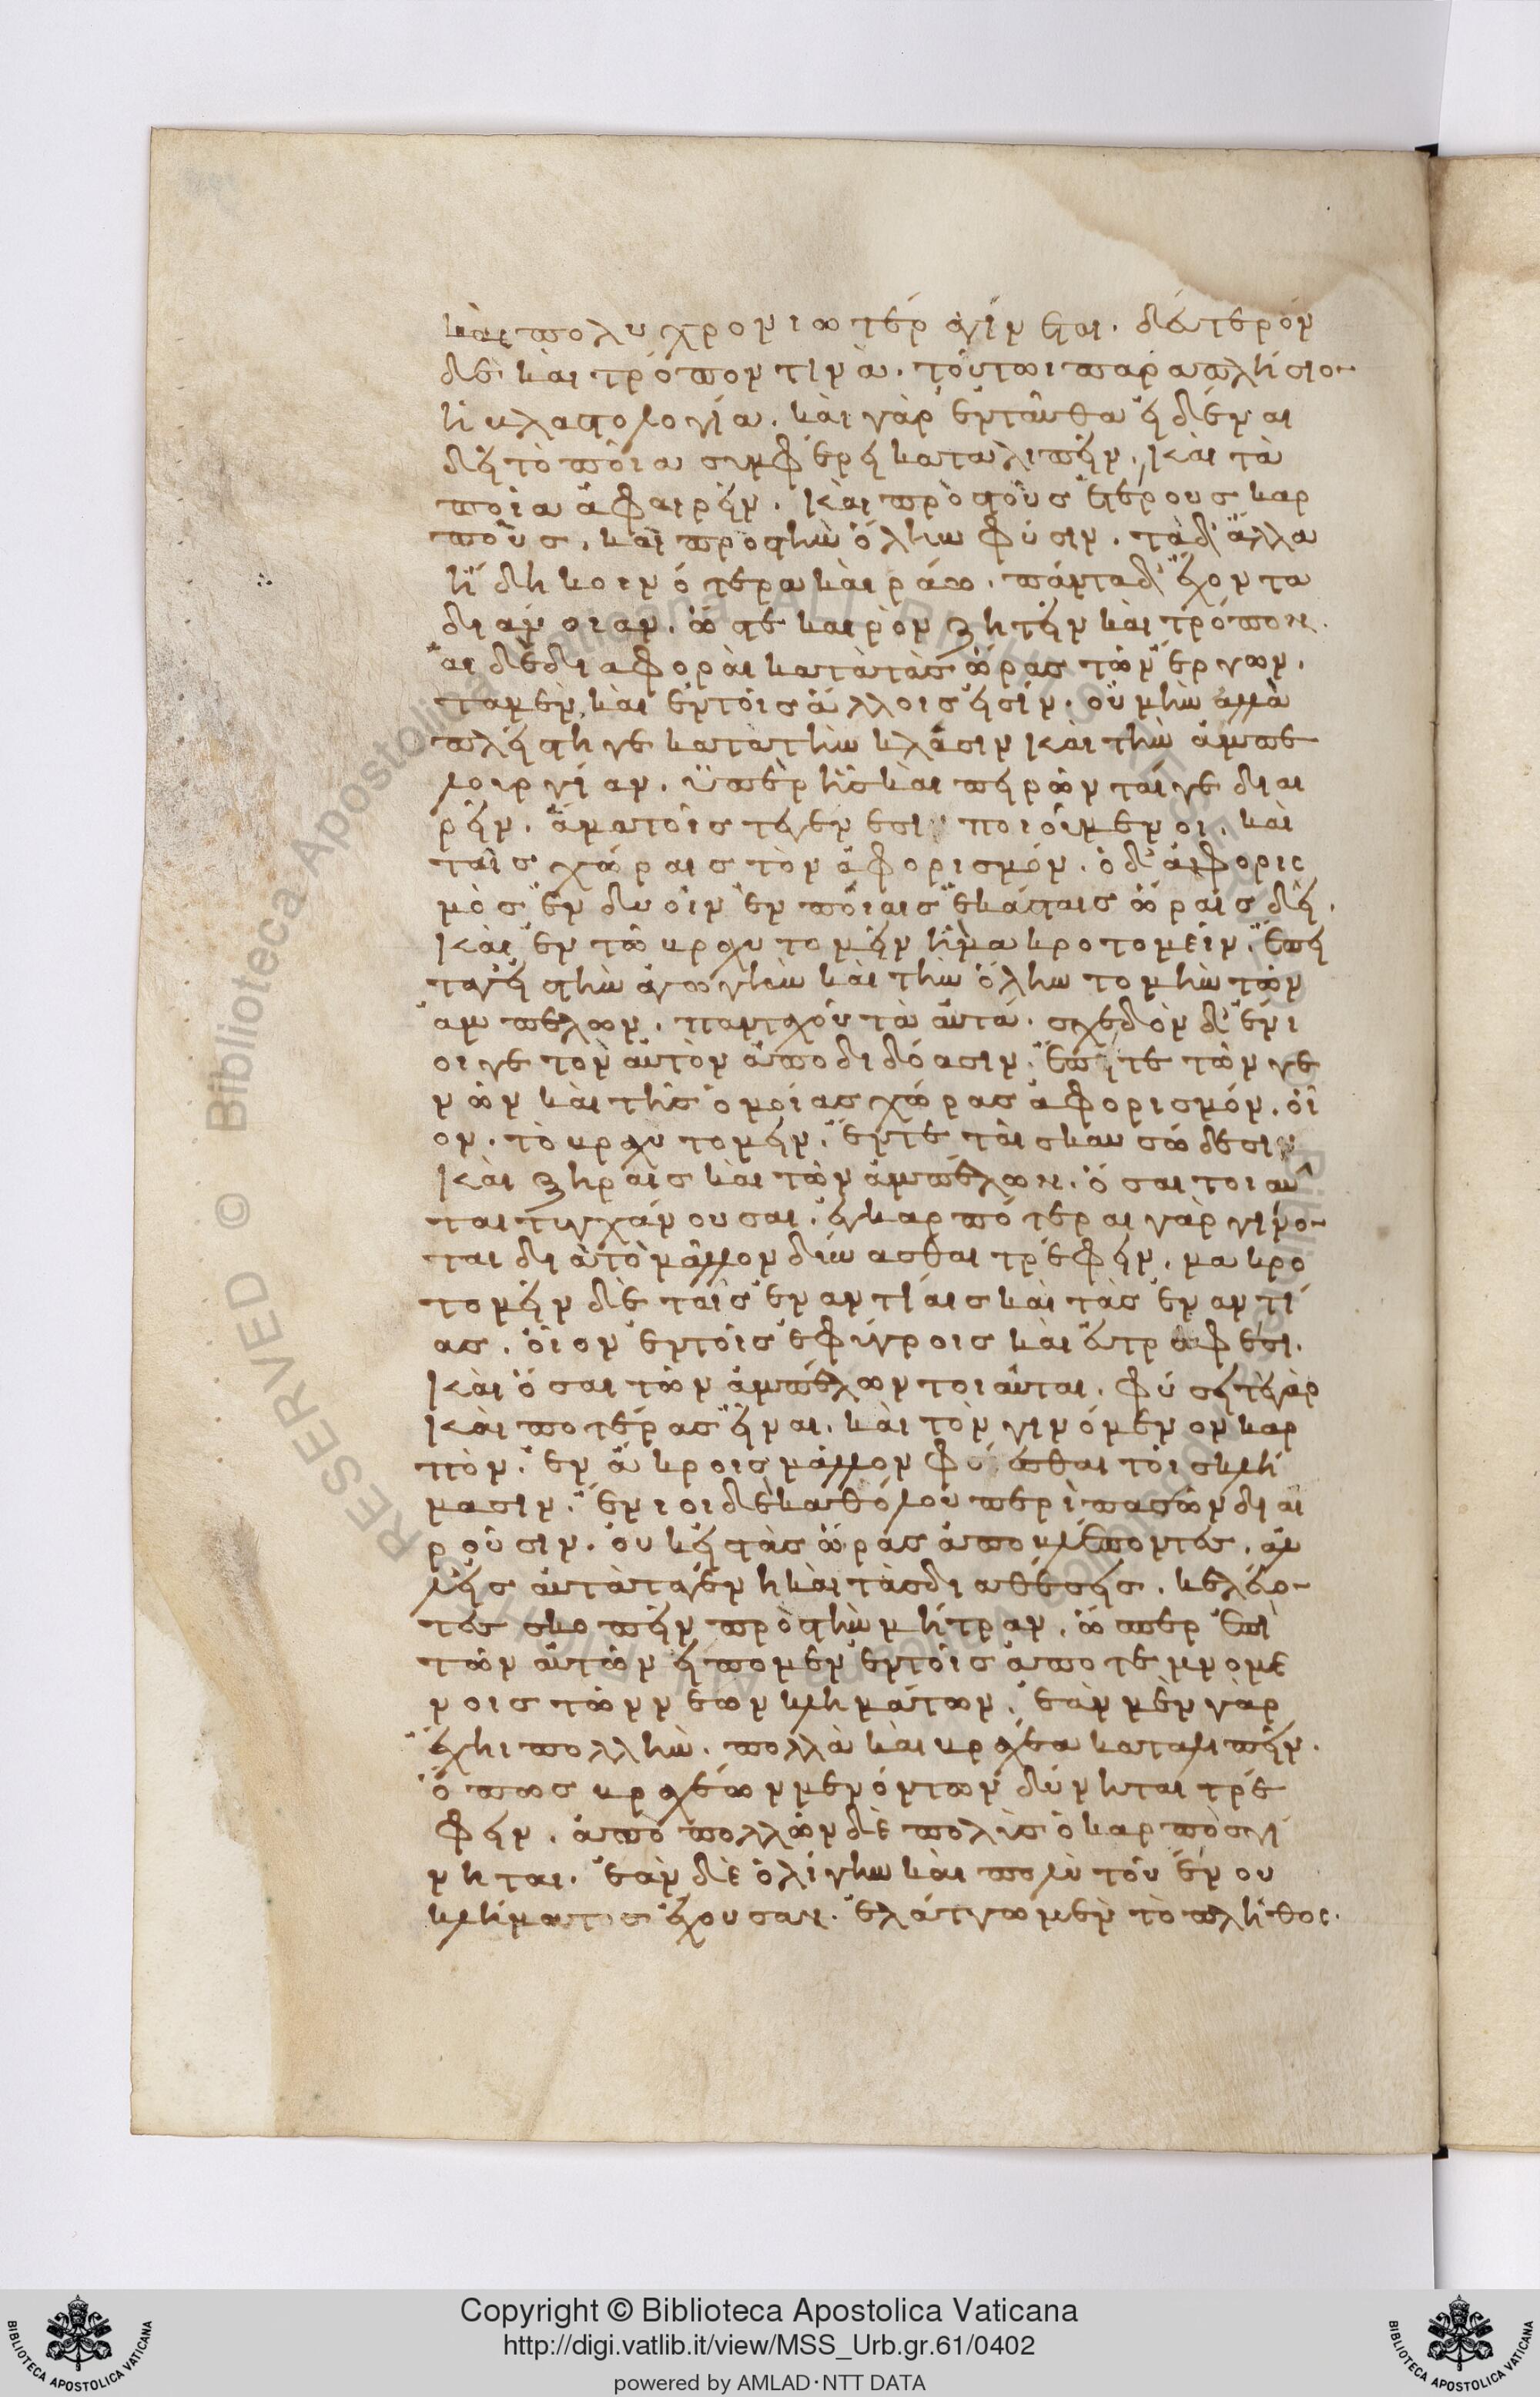 καὶ πολυχρονιωτέρα γίνεται. δεύτερον
δὲ καὶ τρόπον τινὰ. τούτωι παραπλήσιον
ἡ κλαστολογία. καὶ γὰρ ἐνταῦθα εἰδέναι
δεῖ τὸ ποῖα συμφέρει καταλιπεῖν. καὶ τὰ
ποῖα ἀφαιρεῖν. καὶ πρὸς τοὺς ἑτέρους καρ
ποὺς. καὶ πρὸς τὴν ὅλην φύσιν. τὰ δ' ἄλλα
ἤδη κοινότερα καὶ ῥάω. πάντα δ' ἔχοντα
διάνοιαν. ὥστε καιρὸν ζητεῖν καὶ τρόπον.
αἱ δὲ διαφοραὶ κατὰ τὰς ὥρας τῶν ἔργων.
τὰ μὲν καὶ ἐν τοῖς ἄλλοις εἰσίν. οὐ μὴν ἀλλὰ
πλείστη γε κατὰ τὴν κλάσιν καὶ τὴν ἀμπε
λουργίαν. ὑπὲρ ἧς καὶ πειρῶνταί γε διαι
ρεῖν. ἅμα τοῖς τε γένεσι ποιούμενοι. καὶ
ταῖς χώραις τὸν ἀφορισμόν. ὁ δ' ἀφορισ
μὸς ἐν δυοῖν ἐν ποίαις ἑκάσταις ὥραις δεῖ.
καὶ ἐν τῶ βραχυτομεῖν ἢ μακροτομεῖν. ἐπεὶ
τά γε εἰς τὴν ἀγωγὴν καὶ τὴν ὅλην τομὴν τῶν
ἀμπέλων. πανταχοῦ τὰ αὐτά. σχεδὸν δ' ἔνι
οί γε τὸν αὐτὸν ἀποδιδόασιν. ἐπί τε τῶν γε
νῶν καὶ τῆς ὁμοίας χώρας ἀφορισμόν. οἷ
ον. τὸ βραχυτομεῖν. ἔν τε ταῖς καυσώδεσιν
καὶ ξηραῖς καὶ τῶν ἀμπέλων. ὅσαι τοιαῦ
ται τυγχάνουσαι. εὐκαρπότεραι γὰρ γίνον
ται διὰ τὸ μᾶλλον δύνασθαι τρέφειν. μακρο
τομεῖν δὲ ταῖς ἐναντίαις καὶ τὰς ἐναντί
ας. οἷον ἐν τοῖς ἐφύγροις καὶ εὐτραφέσι.
καὶ ὅσαι τῶν ἀμπέλων τοιαῦται. φύσει τε γὰρ
καὶ ποτέρας εἶναι. καὶ τὸν γινόμενον καρ
πὸν. ἐν ἄκροις μᾶλλον φύεσθαι τοῖς κλή
μασιν. ἔνιοι δὲ καθόλου περὶ πασῶν διαι
ροῦσιν. οὐκ εἰς τὰς ὥρας ἀποβλέποντες. ἀλ
λ' εἰς αὐτὰ τὰ γένη καὶ τὰς διαθέσεις. κελεύον
τες σκοπεῖν πρὸς τὴν μήτραν. ὥσπερ ἐπὶ
τῶν αὐτῶν εἴπομεν ἐν τοῖς ἀποτεμνομέ
νοις τῶν νέων κλημάτων. ἐὰν μὲν γὰρ
ἔχηι πολλὴν. πολλὰ καὶ βραχέα καταλιπεῖν.
ὅπως βραχέων μενόντων δύνηται τρέ
φειν. ἀπὸ πολλῶν δὲ πολὺς ὁ καρπὸς γί
νηται. ἐὰν δὲ ὀλίγην καὶ πολὺ τοῦ ἔνου
κλήματος ἔχουσαν. ἐλάττω μὲν τὸ πλῆθος.
Copyright © Biblioteca Apostolica Vaticana
http://digi.vatlib.it/view/MSS_Urb.gr.61/0402
powered by AMLAD·NTT DATA